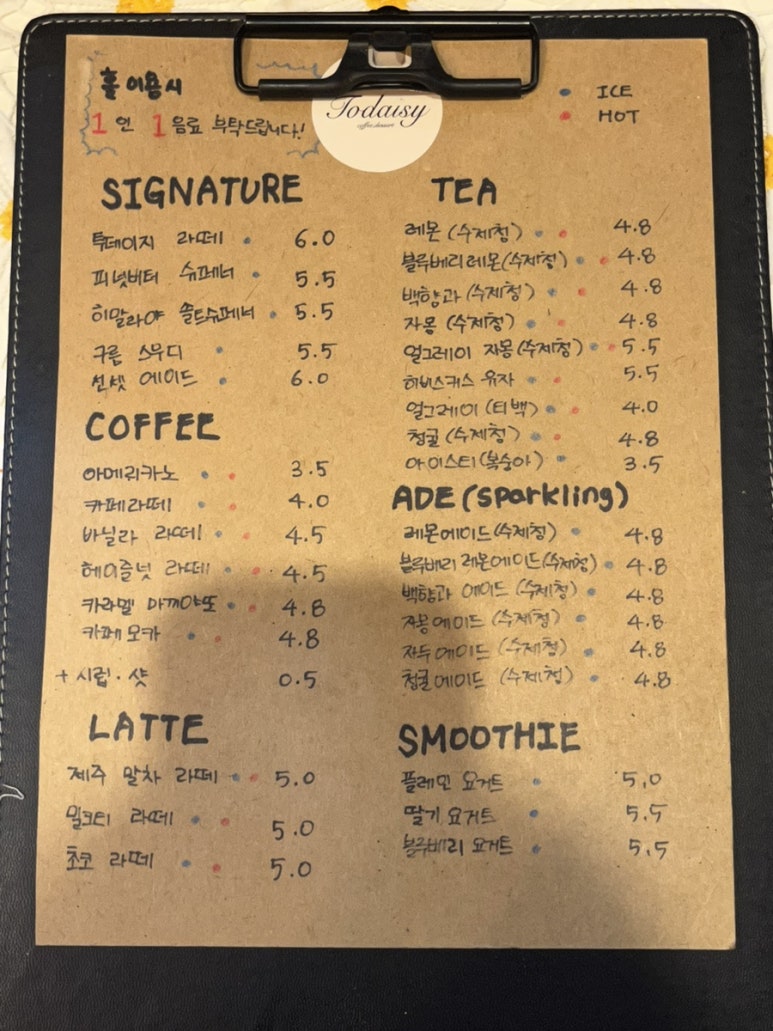 홀 이용시
1인 1음료 부탁드립니다!
Todaisy
coffee dessert
ICE
HOT
SIGNATURE
투데이지 라떼 6.0
피넛버터 슈페너 5.5
히말라야 솔트슈페너 5.5
구름 스무디 5.5
선셋 에이드 6.0
COFFEE
아메리카노 3.5
카페라떼 4.0
바닐라 라떼 4.5
헤이즐넛 라떼 4.5
카라멜 마끼야또 4.8
카페모카 4.8
+ 시럽·샷 0.5
LATTE
제주 말차 라떼 5.0
밀크티 라떼 5.0
초코 라떼 5.0
TEA
레몬 (수제청) 4.8
블루베리레몬(수제청) 4.8
백향과 (수제청) 4.8
자몽 (수제청) 4.8
얼그레이 자몽(수제청) 5.5
히비스커스 유자 5.5
얼그레이 (티백) 4.0
청귤 (수제청) 4.8
아이스티(복숭아) 3.5
ADE (sparkling)
레몬에이드(수제청) 4.8
블루베리 레몬에이드(수제청) 4.8
백향과 에이드 (수제청) 4.8
자몽에이드 (수제청) 4.8
자두에이드 (수제청) 4.8
청귤에이드 (수제청) 4.8
SMOOTHIE
플레인 요거트 5.0
딸기 요거트 5.5
블루베리 요거트 5.5